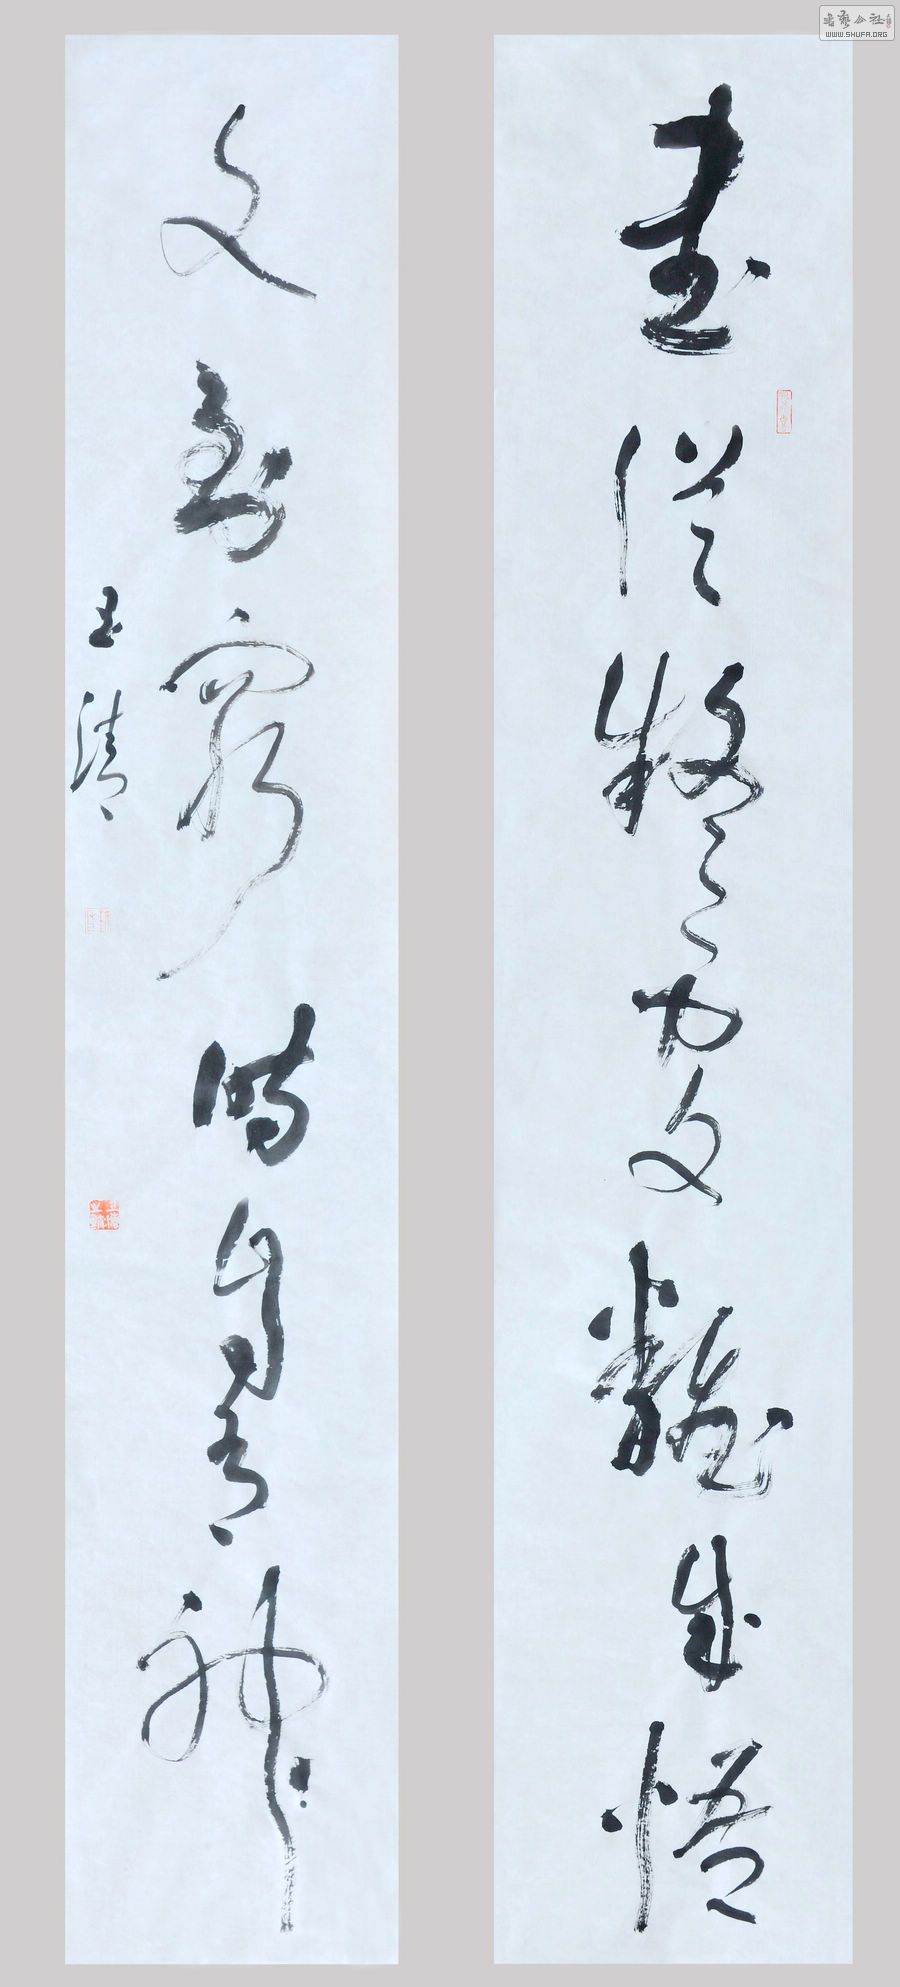 書從疑處翻成悟
文到窮時自有神
玉清
書藝公社
WWW.SHUFA.ORG